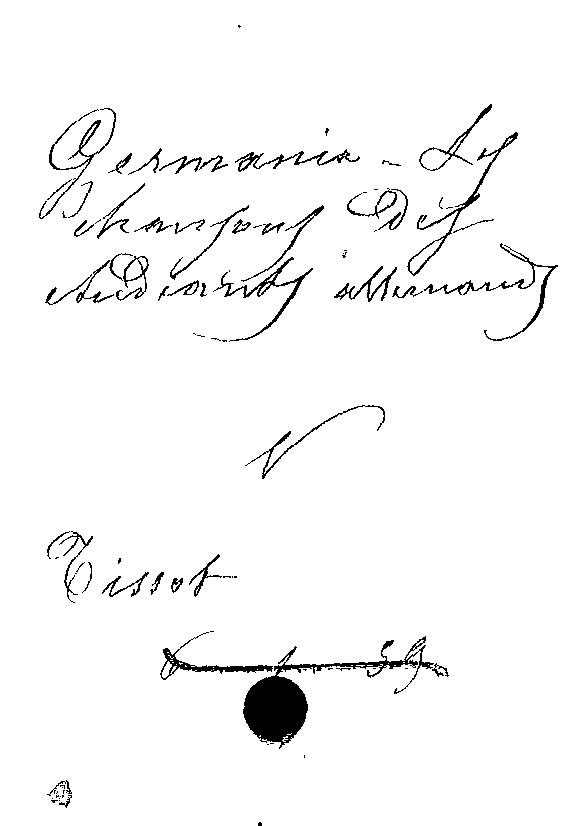 Germania - Les
chansons des
étudiants allemands
V
Tissot